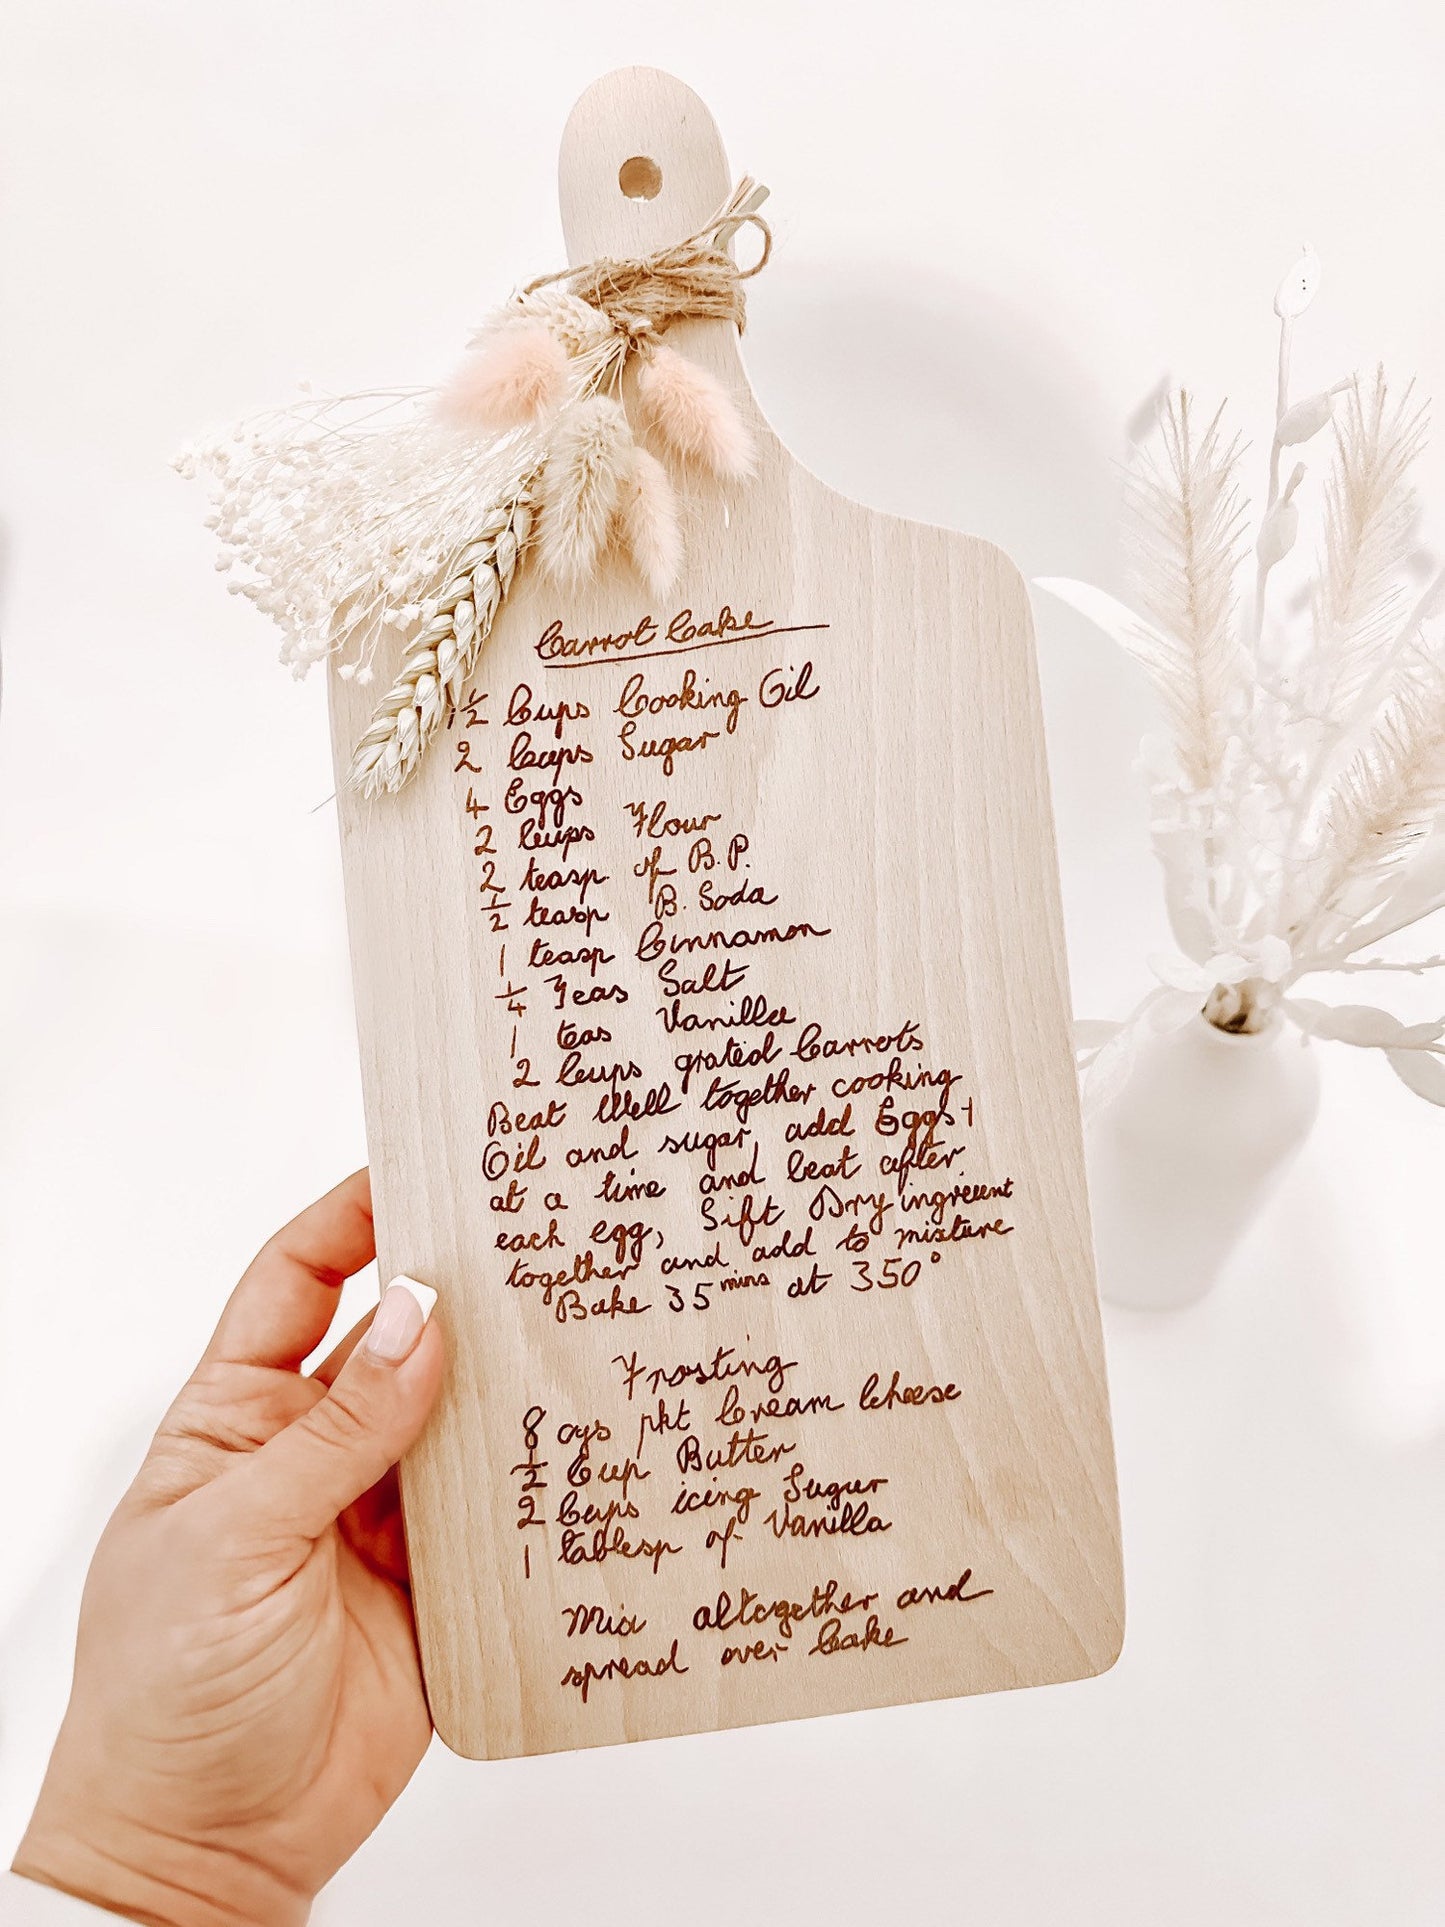 Carrot Cake
1 1/2 Cups Cooking Oil
2 Cups Sugar
4 Eggs
2 Cups Flour
2 teasp. of B.P.
1/2 teasp B. Soda
1 teasp Cinnamon
1/4 Teas Salt
1 teas Vanilla
2 Cups grated Carrots
Beat Well together cooking
Oil and sugar, add Eggs 1
at a time and beat after
each egg, Sift Dry ingrecent
together and add to mixture
Bake 35 mins at 350°
Frosting
8 ozs pkt Cream Cheese
1/2 Cup Butter
2 Cups icing Sugar
1 tablesp of Vanilla
Mix altogether and
spread over Cake